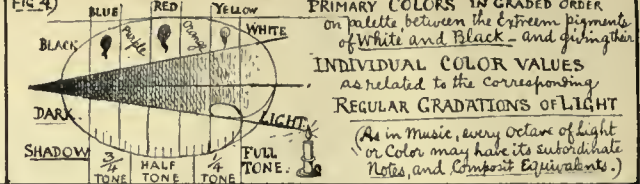 FIG. 4)
BLUE RED YELLOW
BLACK Purple Orange WHITE
DARK. LIGHT.
SHADOW 3/4 TONE HALF TONE 1/4 TONE FULL TONE.
PRIMARY COLORS IN GRADED ORDER
on palette, between the Extreem pigments
of White and Black – and giving their
INDIVIDUAL COLOR VALUES
as related to the corresponding
REGULAR GRADATIONS OF LIGHT
(As in Music, every Octave of Light
or Color may have its subordinate
Notes, and Composit Equivalents.)